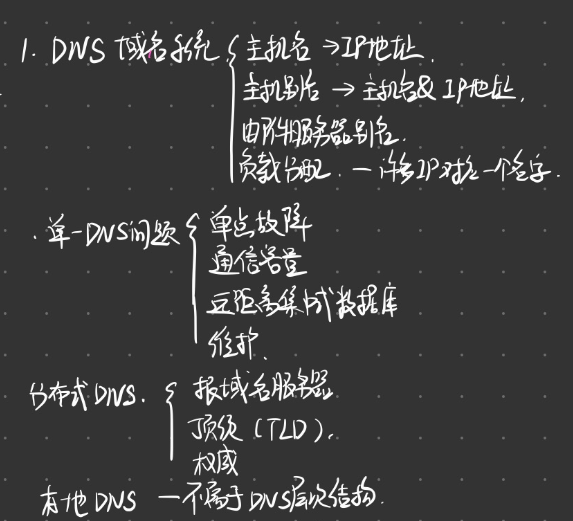 1. DNS 域名系统 { 主机名 → IP地址.
主机别名 → 主机名& IP地址.
由邮件服务器别名.
负载分配. — 许多IP对应一个名字.
. 单一DNS问题 { 单点故障
通信容量
远距离集中式数据库
维护.
分布式 DNS. { 根域名服务器
顶级 (TLD).
权威
本地 DNS — 不属于DNS层次结构.